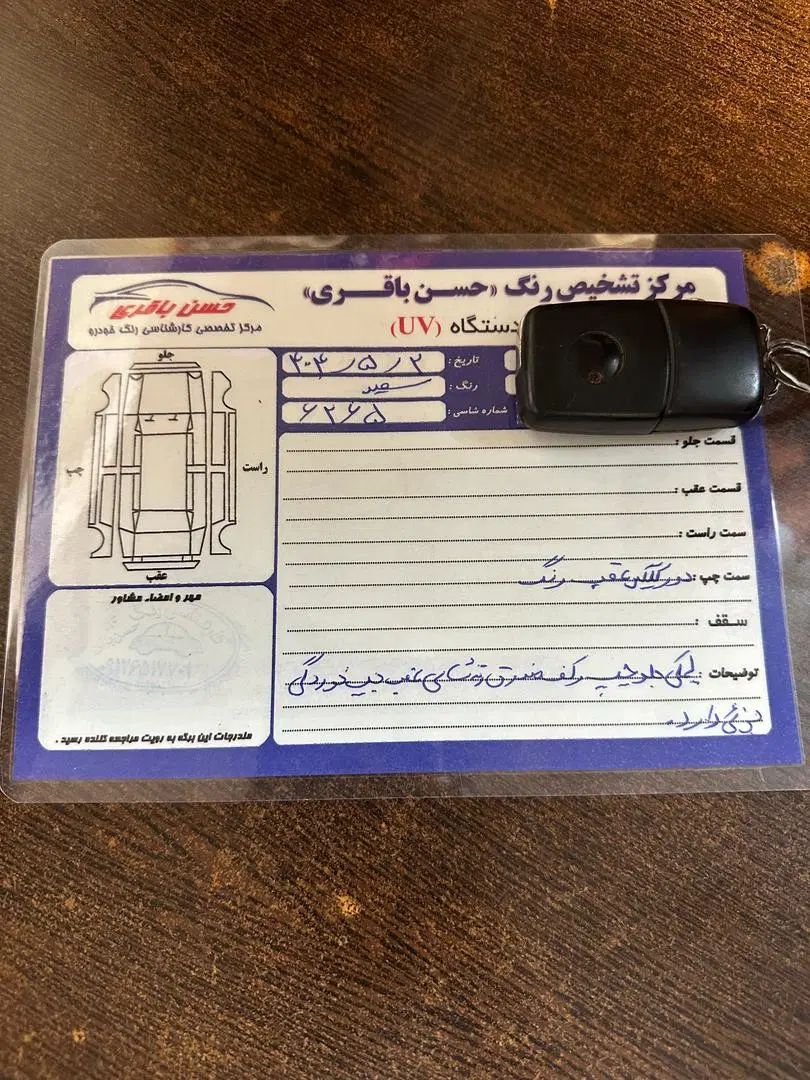 مرکز تشخیص رنگ «حسن باقری»
دستگاه (UV)
حسن باقری
مرکز تخصصی کارشناسی رنگ خودرو
تاریخ: ۴۰۴/۵/۲
رنگ: سفید
شماره شاسی: ۶۲۶۵
جلو
راست
چپ
عقب
قسمت جلو:
قسمت عقب:
سمت راست:
سمت چپ: دور گلگیر عقب رنگ
سقف:
توضیحات: جلو چپ کف صندوق شاسی عقب چپ خوردگی
جزئی دارد.
مهر و امضاء مشاور
مندرجات این برگه به رویت مراجعه کننده رسید.